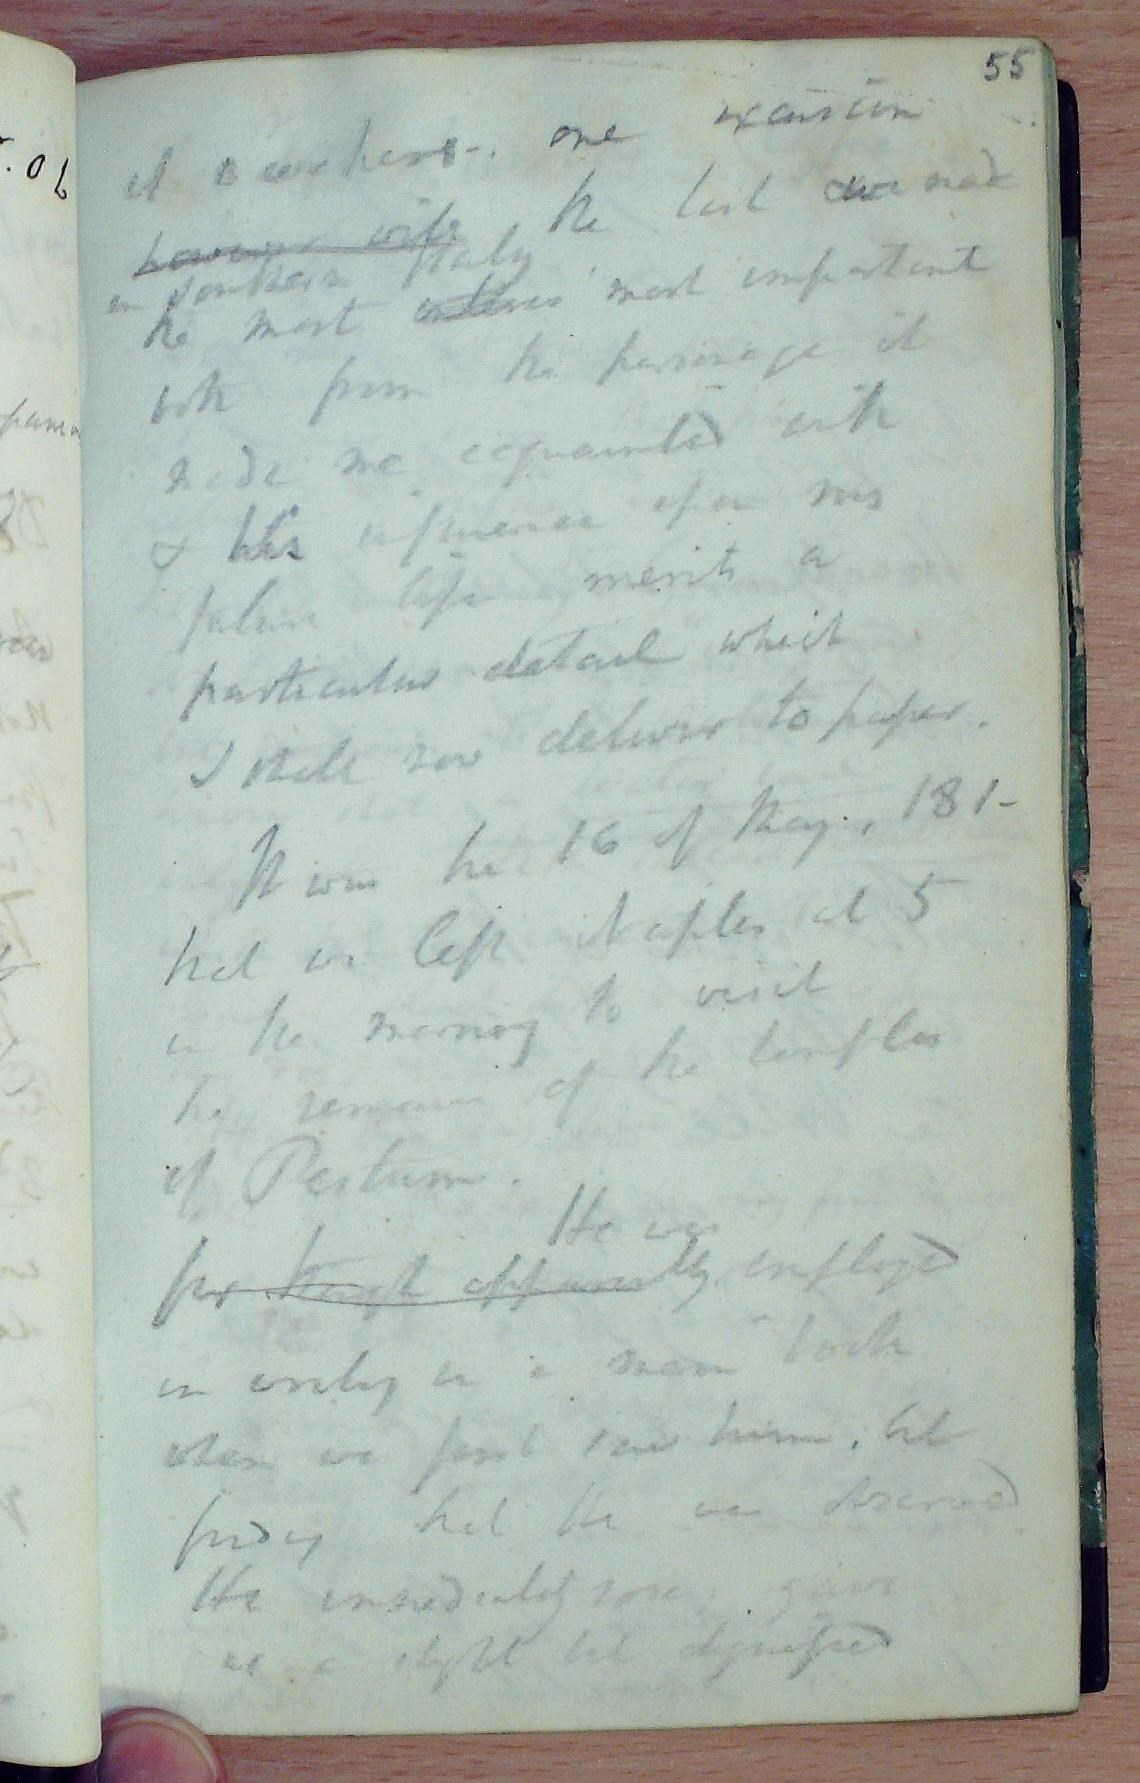 55
of  one excursion
however with the last we made
in Southern Italy
the most interes most important
both from the personage it
made me acquainted with
& his influence upon my
future life merits a
particular detail which
I shall now deliver to paper.
It was the 16 of May, 181-
that we left Naples at 5
in the morning to visit
the remains of the temples
of Pestum.
He was
for though apparently employed
in writing in a mem book
when we first saw him, but
finding that He was observed
He immediately rose, gave
us a slight but dignified